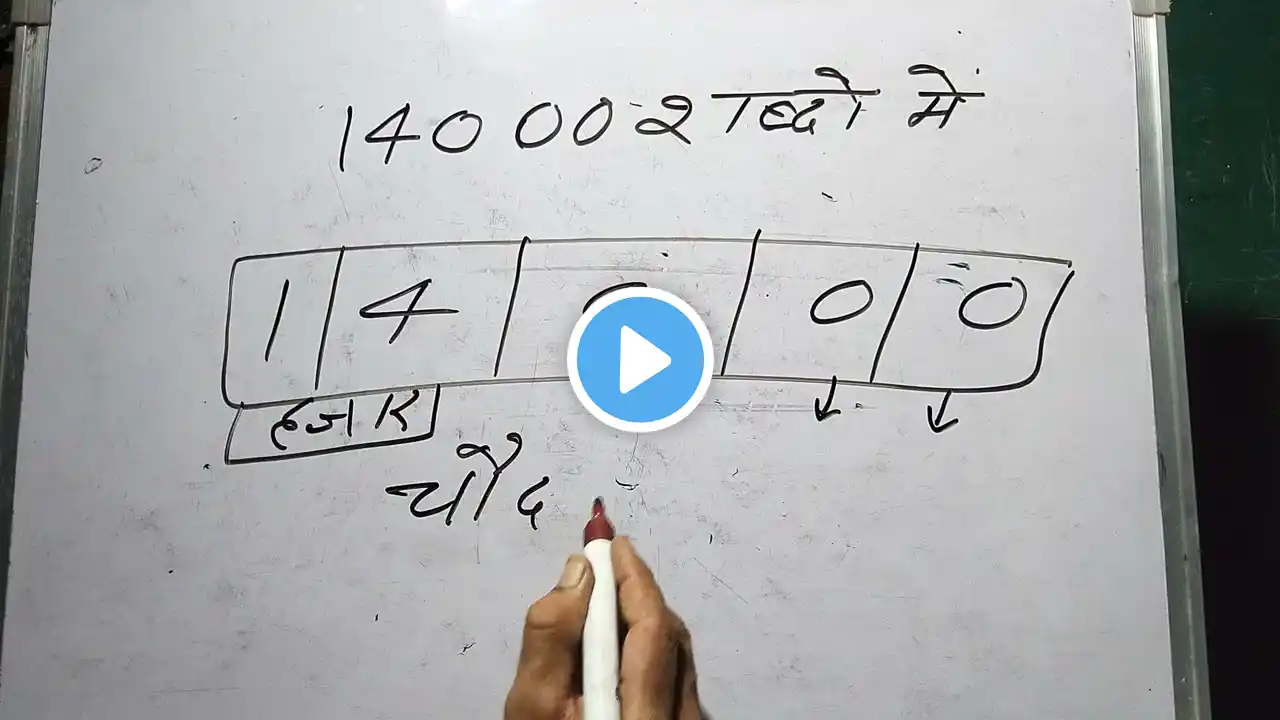 14000 शब्दो मे
1 4 0 0 0
हजार
चौद